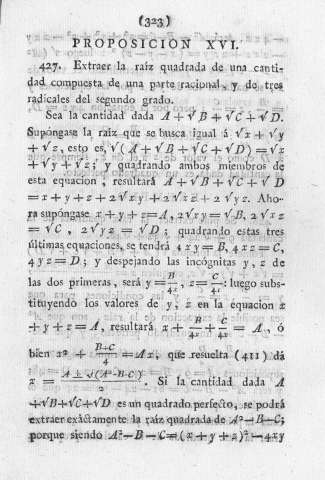 (323)
PROPOSICION XVI.
427. Extraer la raíz quadrada de una canti-
dad compuesta de una parte racional y de tres
radicales del segundo grado.
Sea la cantidad dada A+√B+√C+√D.
Supóngase la raíz que se busca igual á √x+√y
+√z, esto es, √(A+√B+√C+√D)=√x
+√y+√z; y quadrando ambos miembros de
esta equacion, resultará A+√B+√C+√D
=x+y+z+2√xy+2√xz+2√yz. Aho-
ra supóngase x+y+z=A, 2√xy=√B, 2√xz
=√C, 2√yz=√D; quadrando estas tres
últimas equaciones, se tendrá 4xy=B, 4xz=C,
4yz=D; y despejando las incógnitas y, z de
las dos primeras, será y=B/4x, z=C/4x: luego subs-
tituyendo los valores de y, z en la equacion x
+y+z=A, resultará, x+B/4x+C/4x=A, ó
bien x²+(B+C)/4=Ax, que resuelta (411) dá
x=(A±√(A²-B-C))/2. Si la cantidad dada A
+√B+√C+√D es un quadrado perfecto, se podrá
extraer exâctamente la raíz quadrada de A²-B-C;
porque siendo A²-B-C=(x+y+z)²-4xy